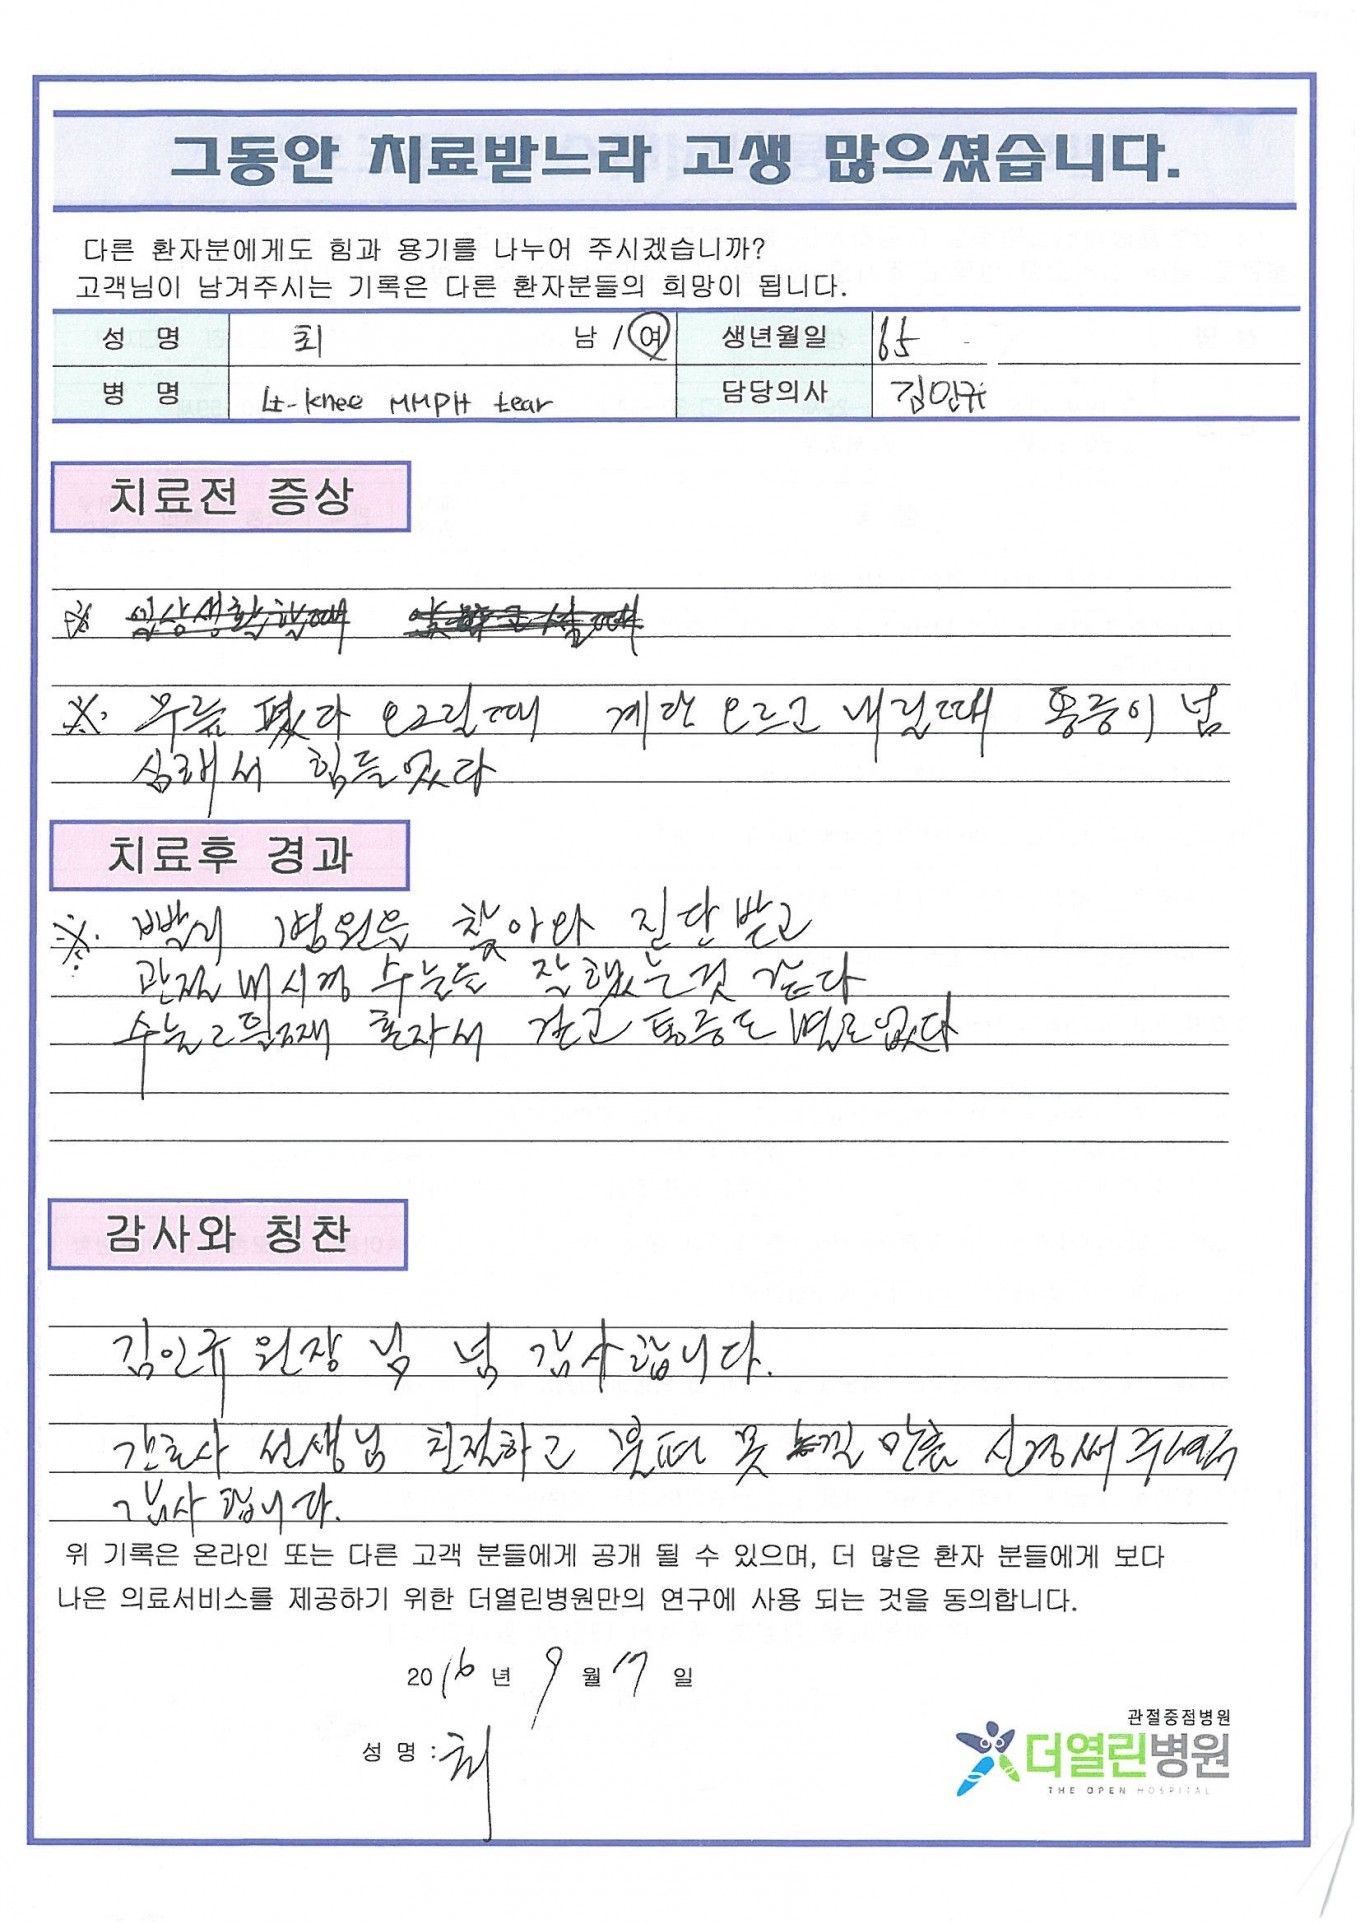 그동안 치료받느라 고생 많으셨습니다.
다른 환자분에게도 힘과 용기를 나누어 주시겠습니까?
고객님이 남겨주시는 기록은 다른 환자분들의 희망이 됩니다.
성 명 최 남 / 여 생년월일 65 -
병 명 Lt-knee MMPH tear 담당의사 김인규
치료전 증상
※ 일상생활할때
※. 무릎 폈다 오그릴때 계단 오르고 내릴때 통증이 넘
심해서 힘들었다
치료후 경과
※. 빨리 병원을 찾아와 진단받고
관절내시경 수술을 잘했는것 같다
수술 2틀째 혼자서 걷고 통증도 별로없다
감사와 칭찬
김인규 원장 님 넘 감사합니다.
간호사 선생님 친절하고 불편 못 느낄 만큼 신경써주셔서
감사합니다.
위 기록은 온라인 또는 다른 고객 분들에게 공개 될 수 있으며, 더 많은 환자 분들에게 보다
나은 의료서비스를 제공하기 위한 더열린병원만의 연구에 사용 되는 것을 동의합니다.
2016 년 9 월 17 일
성 명 : 최
관절중점병원
더열린병원
THE OPEN HOSPITAL